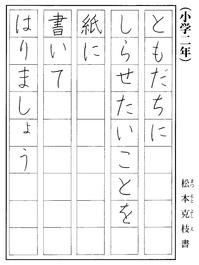 (小学二年)
ともだちに
しらせたいことを
紙に
書いて
はりましょう
松本克枝書
まつもとかつえ